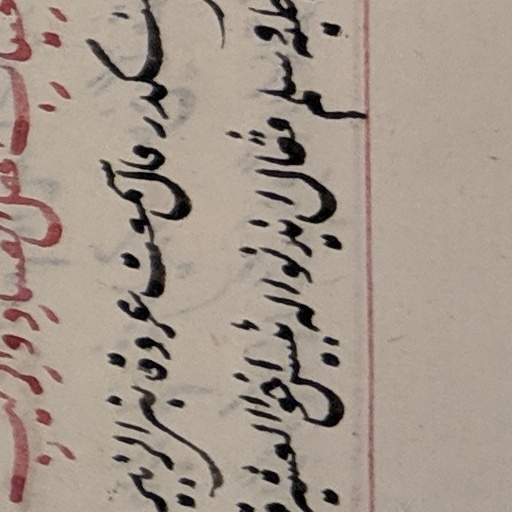 اغتياب اهل الفساد والريب
منكدر قال سمعت عروة بن الزبير
عليه وسلم فقال ائذنوا له بئس اخو العشيرة